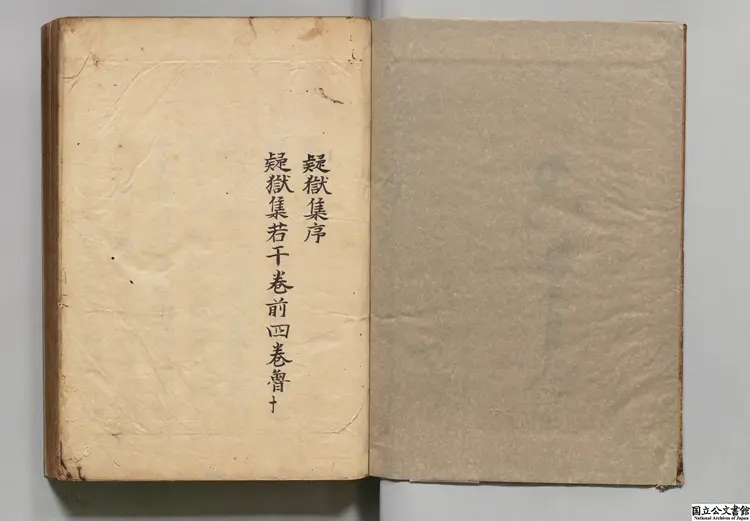 疑獄集序
疑獄集若干卷前四卷魯十
国立公文書館
National Archives of Japan